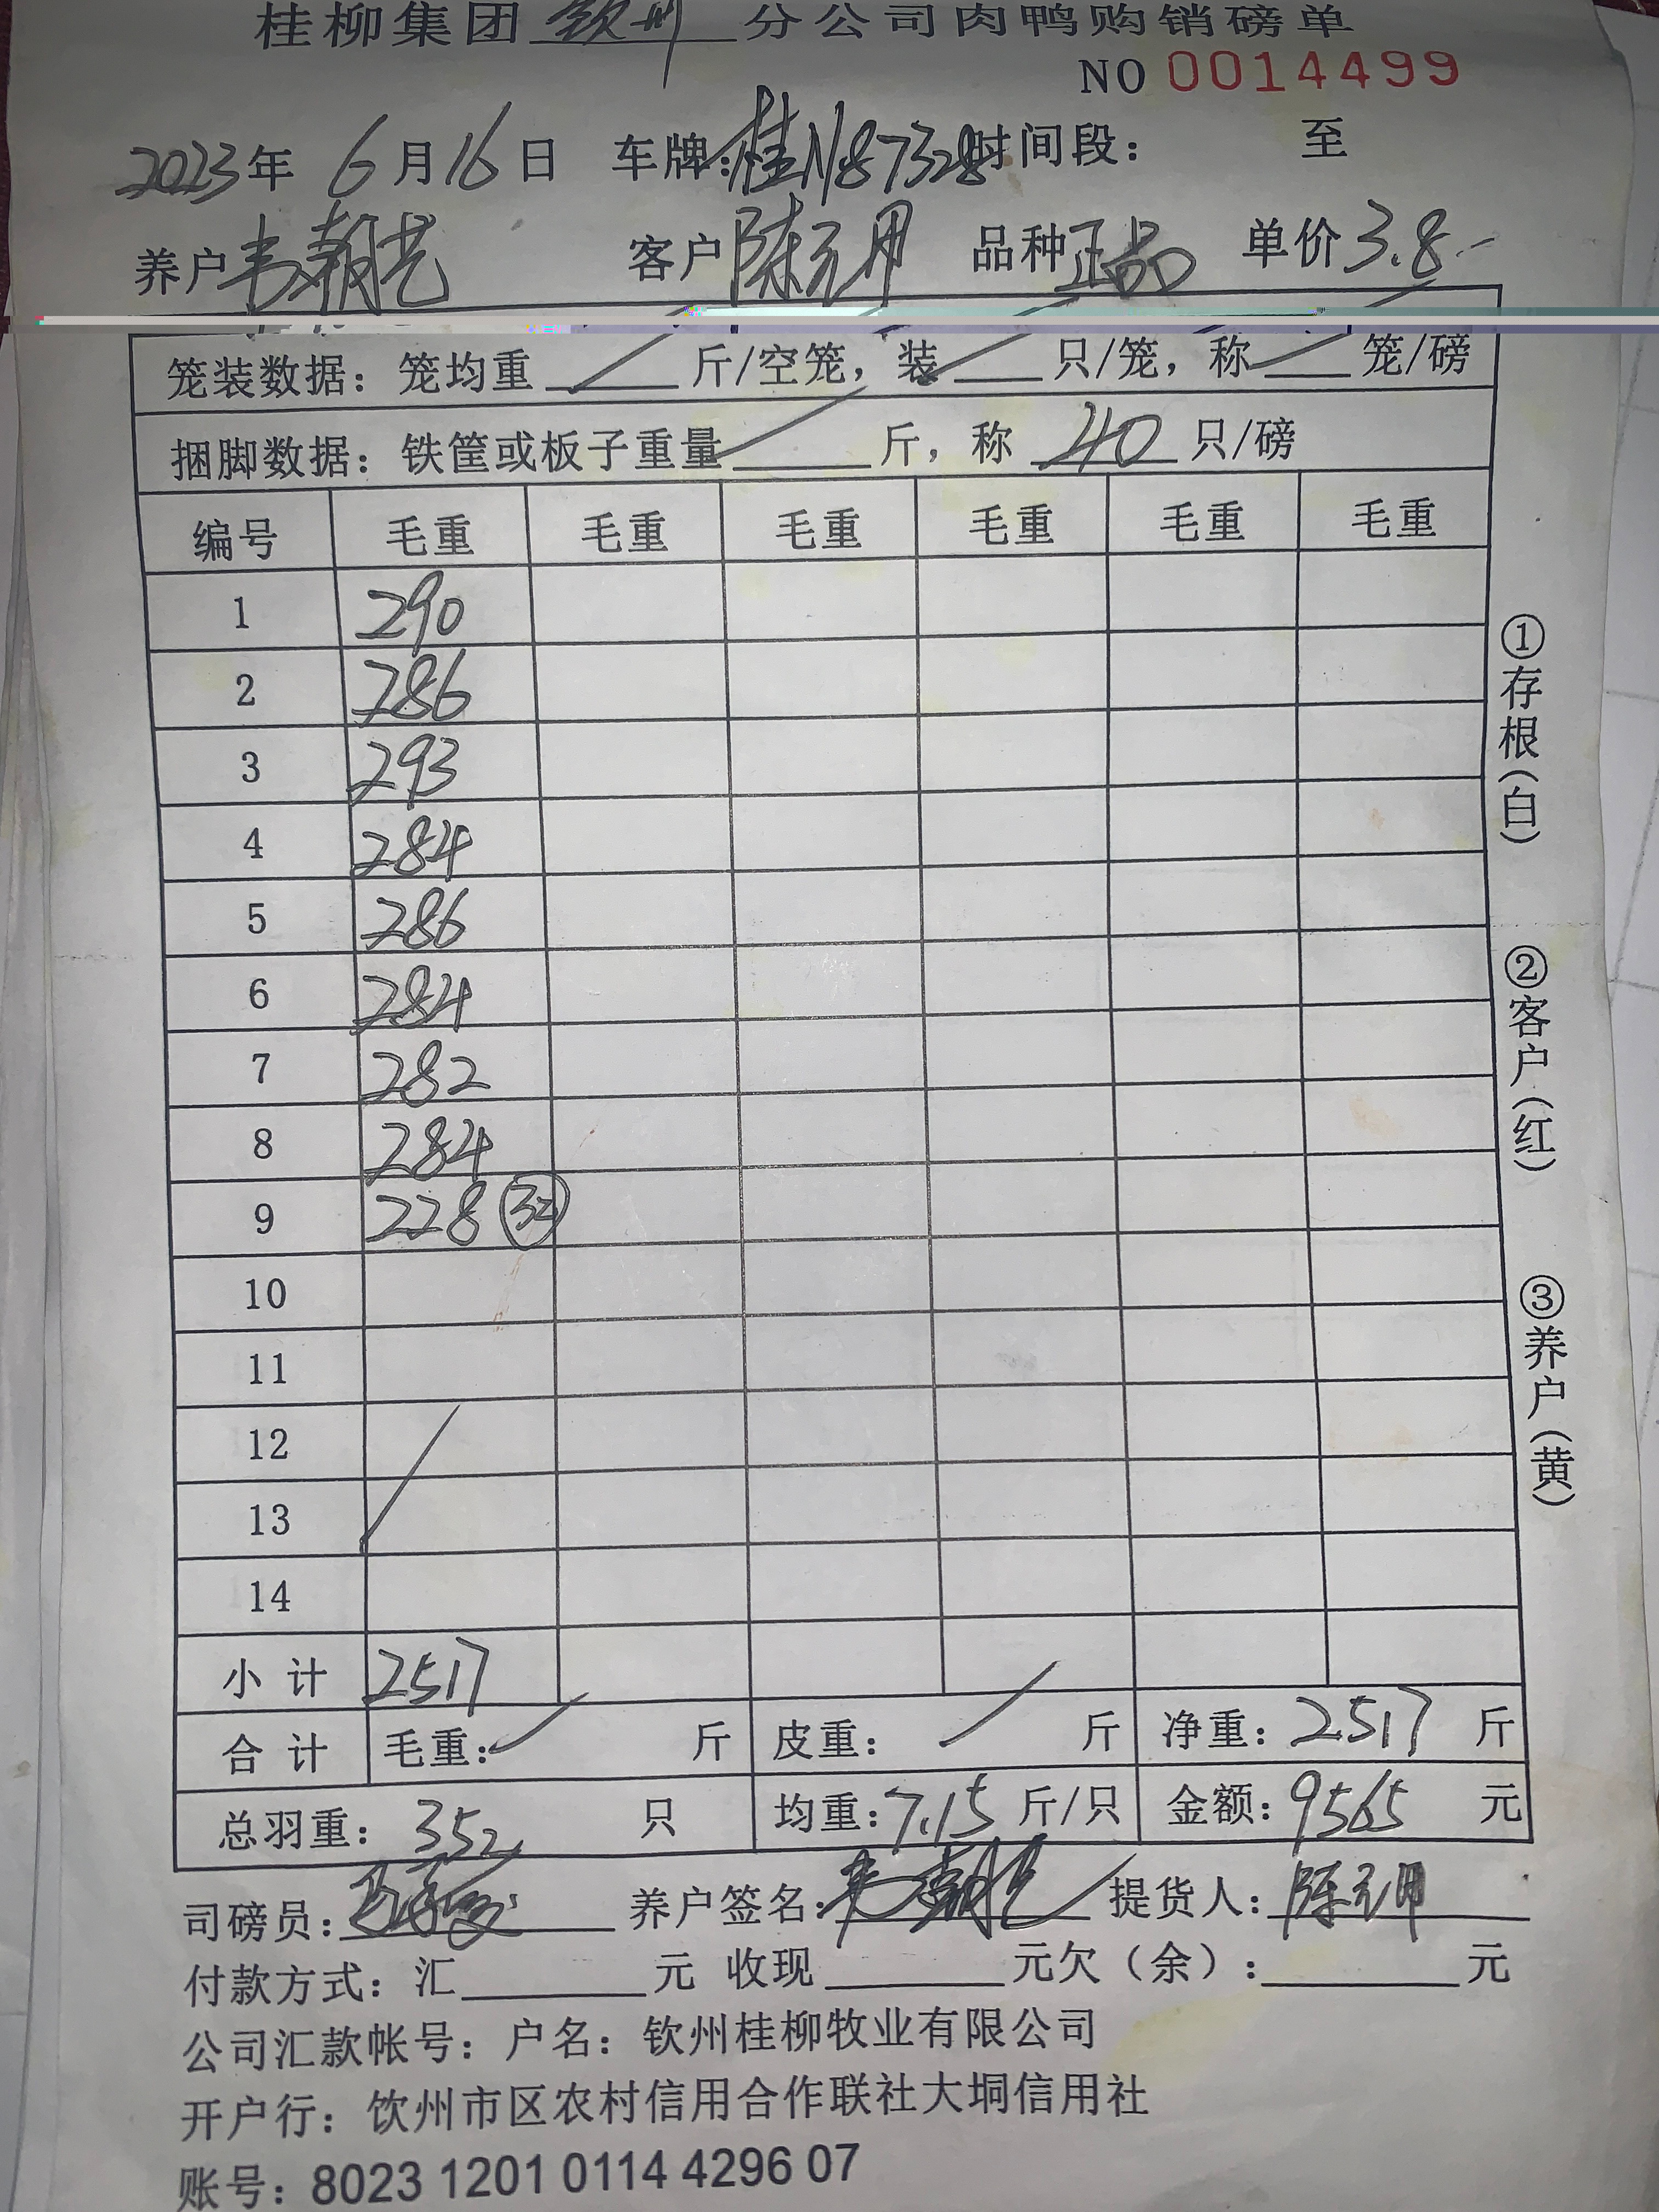 桂柳集团钦州分公司肉鸭购销磅单
NO 0014499
2023年 6月16日 车牌:桂N87328时间段: 至
养户韦朝艺 客户陈元用 品种正品 单价3.8
笼装数据: 笼均重 斤/空笼, 装 只/笼, 称 笼/磅
捆脚数据: 铁筐或板子重量 斤, 称 40 只/磅
编号 毛重 毛重 毛重 毛重 毛重 毛重
1 290
2 286
3 293
4 284
5 286
6 284
7 282
8 284
9 228 32
10
11
12
13
14
小计 2517
合计 毛重: 斤 皮重: 斤 净重: 2517 斤
总羽重: 352 只 均重: 7.15 斤/只 金额: 9565 元
司磅员: 养户签名: 韦朝艺 提货人: 陈元用
付款方式: 汇 元 收现 元欠(余): 元
公司汇款帐号: 户名: 钦州桂柳牧业有限公司
开户行: 饮州市区农村信用合作联社大垌信用社
账号: 8023 1201 0114 4296 07
①存根(白)
②客户(红)
③养户(黄)